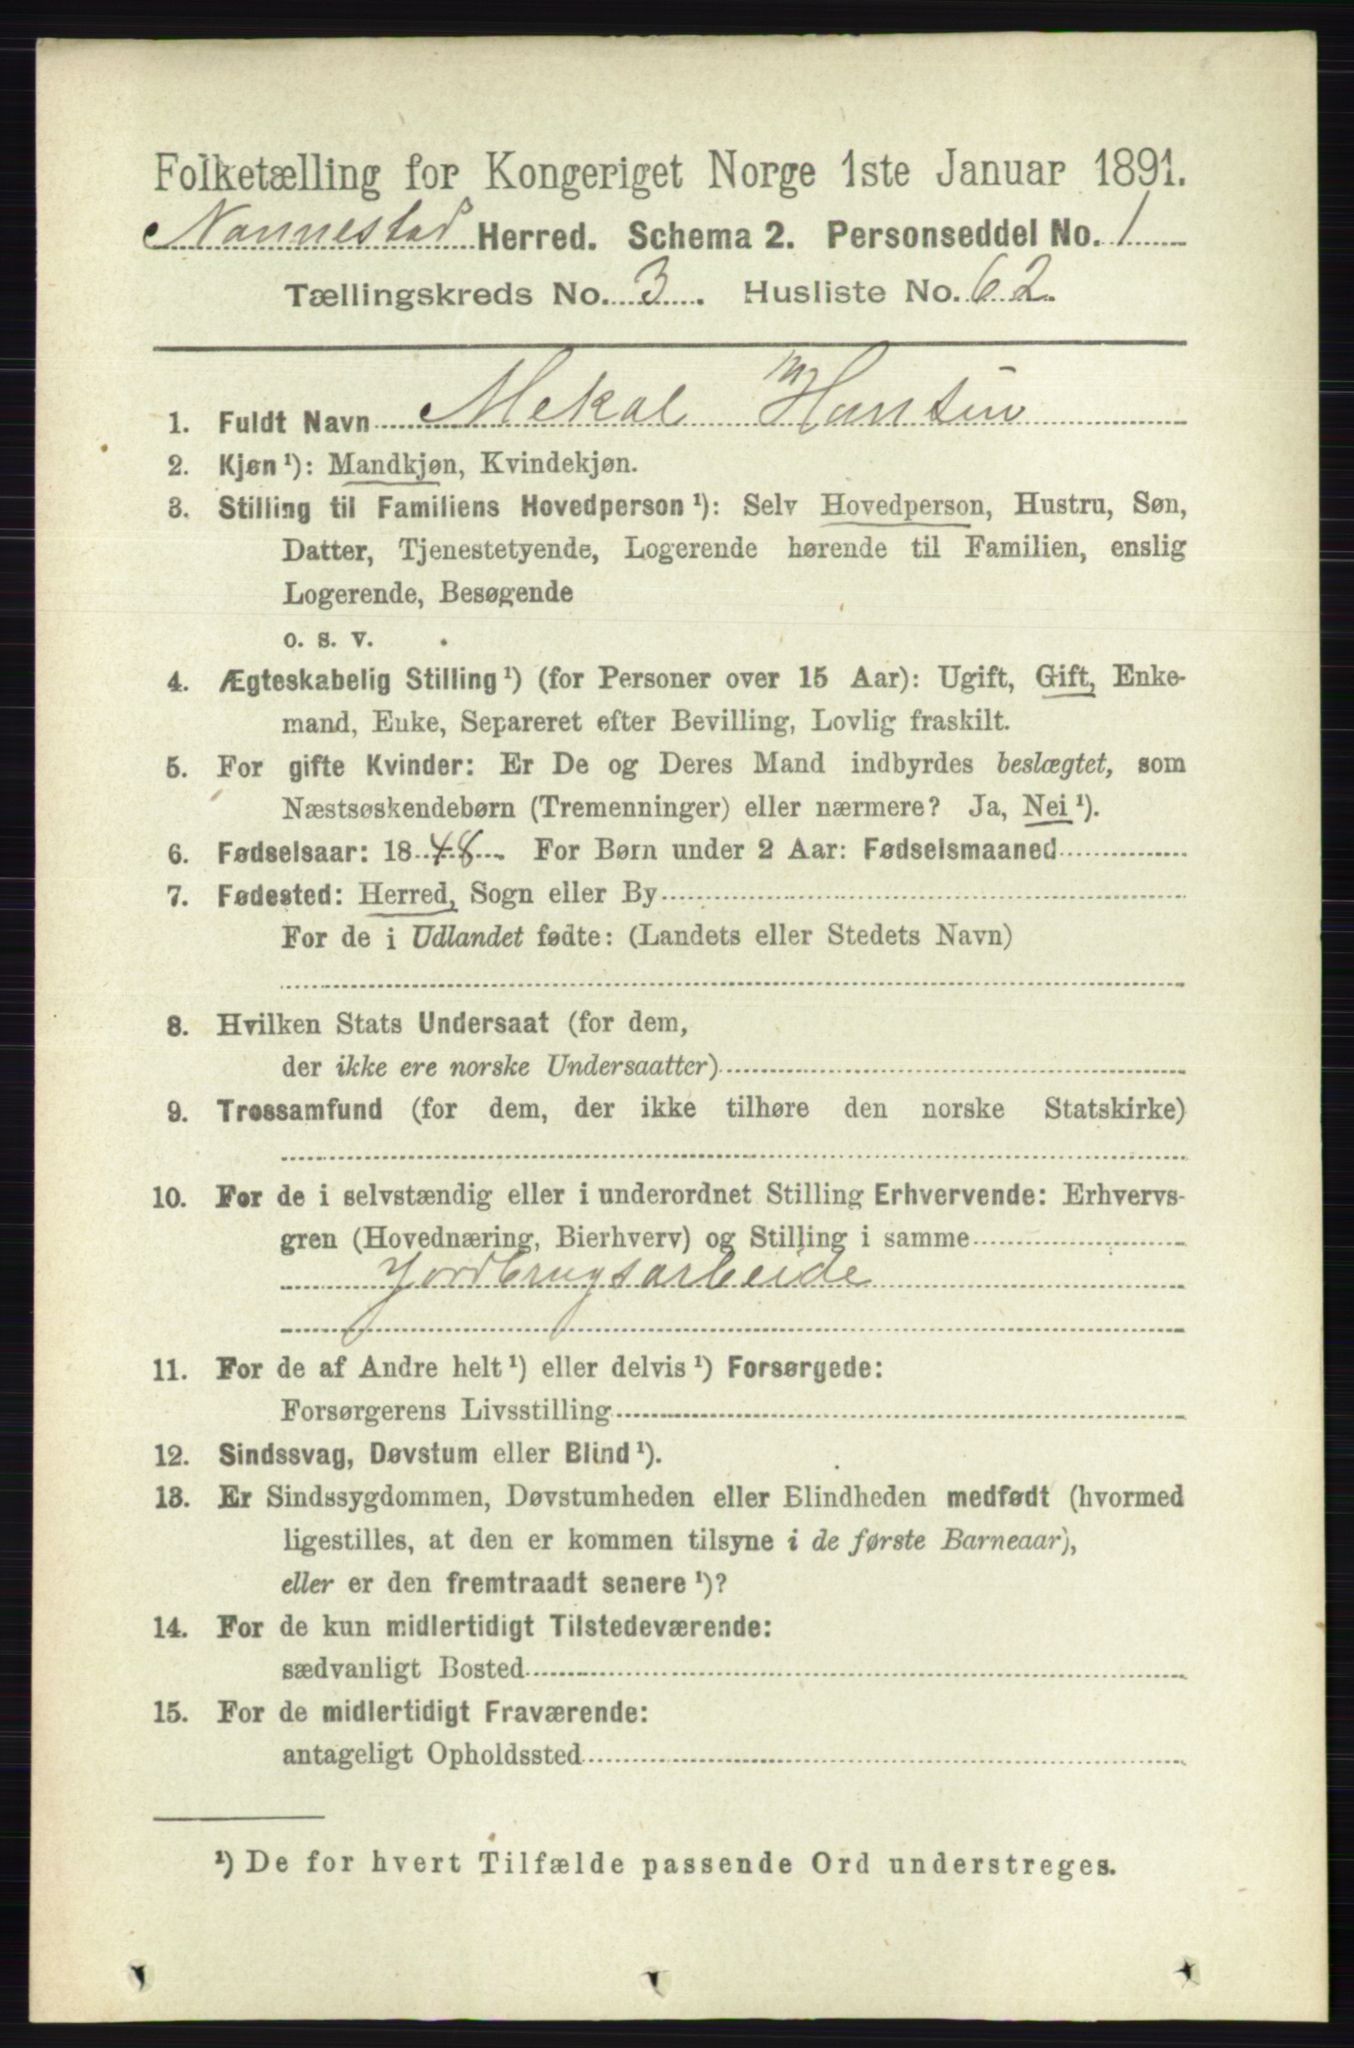 Folketælling for Kongeriget Norge 1ste Januar 1891.
Nannestad Herred. Schema 2. Personseddel No. 1
Tællingskreds No. 3. Husliste No. 62.
1. Fuldt Navn Mekal Hansen
m
2. Kjøn ¹): Mandkjøn, Kvindekjøn.
3. Stilling til Familiens Hovedperson ¹): Selv Hovedperson, Hustru, Søn,
Datter, Tjenestetyende, Logerende hørende til Familien, enslig
Logerende, Besøgende
o. s. v.
4. Ægteskabelig Stilling ¹) (for Personer over 15 Aar): Ugift, Gift, Enke-
mand, Enke, Separeret efter Bevilling, Lovlig fraskilt.
5. For gifte Kvinder: Er De og Deres Mand indbyrdes beslægtet, som
Næstsøskendebørn (Tremenninger) eller nærmere? Ja, Nei ¹).
6. Fødselsaar: 1848. For Børn under 2 Aar: Fødselsmaaned
7. Fødested: Herred, Sogn eller By
For de i Udlandet fødte: (Landets eller Stedets Navn)
8. Hvilken Stats Undersaat (for dem,
der ikke ere norske Undersaatter)
9. Trossamfund (for dem, der ikke tilhøre den norske Statskirke)
10. For de i selvstændig eller i underordnet Stilling Erhvervende: Erhvervs-
gren (Hovednæring, Bierhverv) og Stilling i samme
Jordbrugsarbeide
11. For de af Andre helt ¹) eller delvis ¹) Forsørgede:
Forsørgerens Livsstilling
12. Sindssvag, Døvstum eller Blind ¹).
13. Er Sindssygdommen, Døvstumheden eller Blindheden medfødt (hvormed
ligestilles, at den er kommen tilsyne i de første Barneaar),
eller er den fremtraadt senere ¹)?
14. For de kun midlertidigt Tilstedeværende:
sædvanligt Bosted
15. For de midlertidigt Fraværende:
antageligt Opholdssted
¹) De for hvert Tilfælde passende Ord understreges.